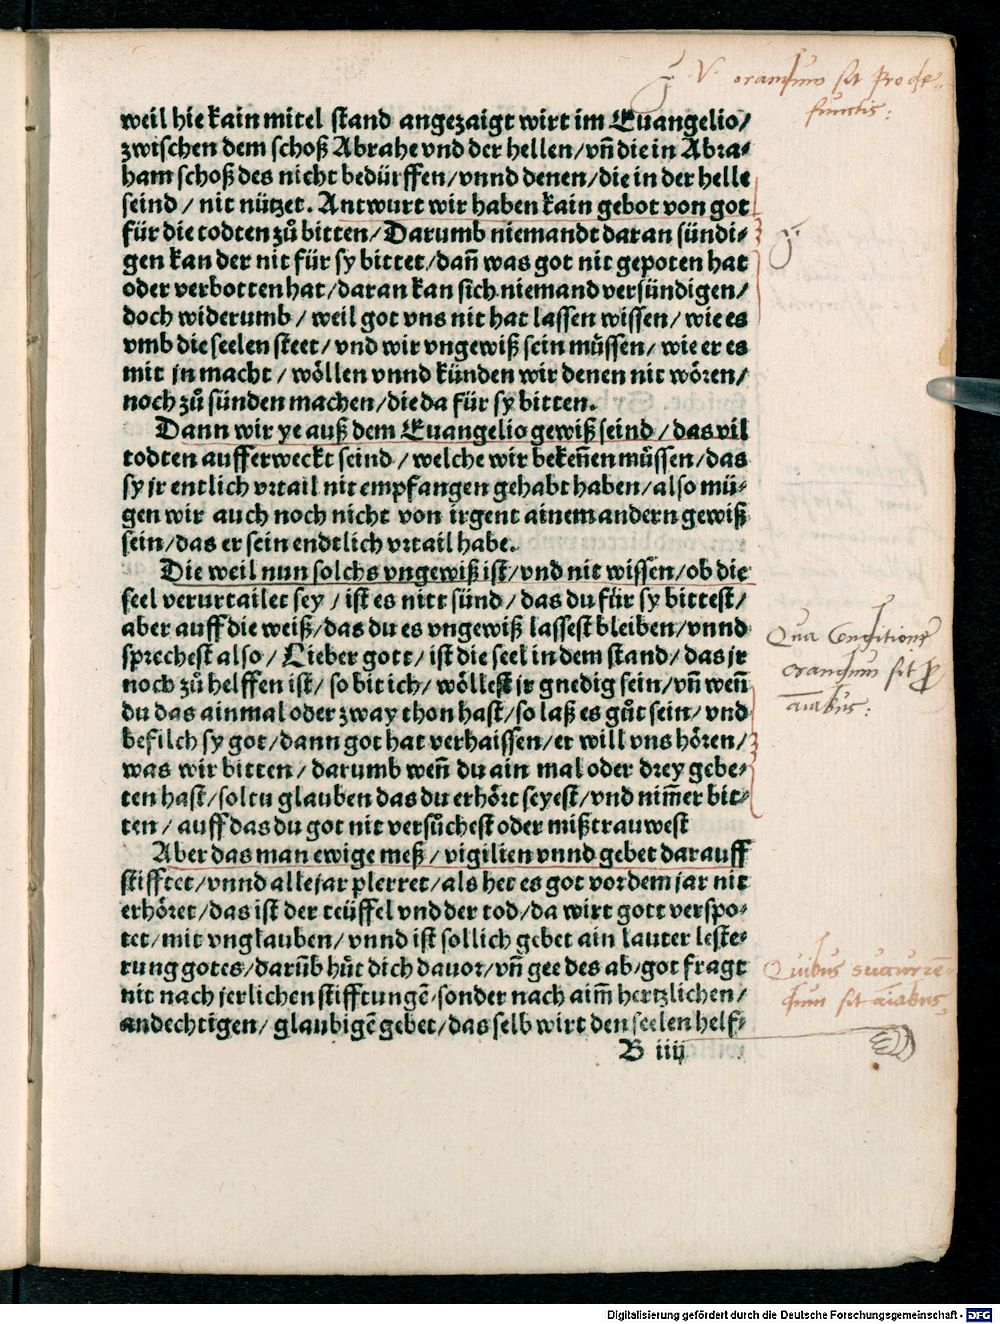 V. orandum sit pro de-
functis:
weil hie kain mitel stand angezaigt wirt im Euangelio/
zwischen dem schoß Abrahe vnd der hellen/vn̄ die in Abra⸗
ham schoß des nicht bedürffen/vnnd denen/die in der helle
seind/nit nützet. Antwurt wir haben kain gebot von got
für die todten zů bitten/Darumb niemandt daran sündi⸗
gen kan der nit für sy bittet/dan̄ was got nit gepoten hat
oder verbotten hat/daran kan sich niemand versündigen/
doch widerumb/weil got vns nit hat lassen wissen/wie es
vmb die seelen steet/vnd wir vngewiß sein müssen/wie er es
mit jn macht/wöllen vnnd künden wir denen nit wören/
noch zů sünden machen/die da für sy bitten.
Dann wir ye auß dem Euangelio gewiß seind/das vil
todten aufferweckt seind/welche wir beken̄en müssen/das
sy jr entlich vrtail nit empfangen gehabt haben/also mü⸗
gen wir auch noch nicht von irgent ainem andern gewiß
sein/das er sein endtlich vrtail habe.
Die weil nun solchs vngewiß ist/vnd nit wissen/ob die
seel verurtailet sey/ist es nitt sünd/das du für sy bittest/
aber auff die weiß/das du es vngewiß lassest bleiben/vnnd
sprechest also/Lieber gott/ist die seel in dem stand/das jr
noch zů helffen ist/so bit ich/wöllest jr gnedig sein/vn̄ wen̄
du das ainmal oder zway thon hast/so laß es gůt sein/vnd
befilch sy got/dann got hat verhaissen/er will vns hören/
was wir bitten/darumb wen̄ du ain mal oder drey gebe⸗
ten hast/soltu glauben das du erhört seyest/vnd nim̄er bit⸗
ten/auff das du got nit versůchest oder mißtrauwest
Aber das man ewige meß/vigilien vnnd gebet darauff
stifftet/vnnd alle jar plerret/als het es got vor dem jar nit
erhöret/das ist der teüffel vnd der tod/da wirt gott verspo⸗
tet/mit vnglauben/vnnd ist sollich gebet ain lauter leste⸗
rung gotes/darūb hüt dich dauor/vn̄ gee des ab/got fragt
nit nach jerlichen stifftungē/sonder nach aim̄ hertzlichen/
andechtigen/glaubigē gebet/das selb wirt den seelen helf⸗
B iiij
Qua Conditione
orandum sit p
aīabus:
Quibus sucurrē-
dum sit aīabus
Digitalisierung gefördert durch die Deutsche Forschungsgemeinschaft - DFG